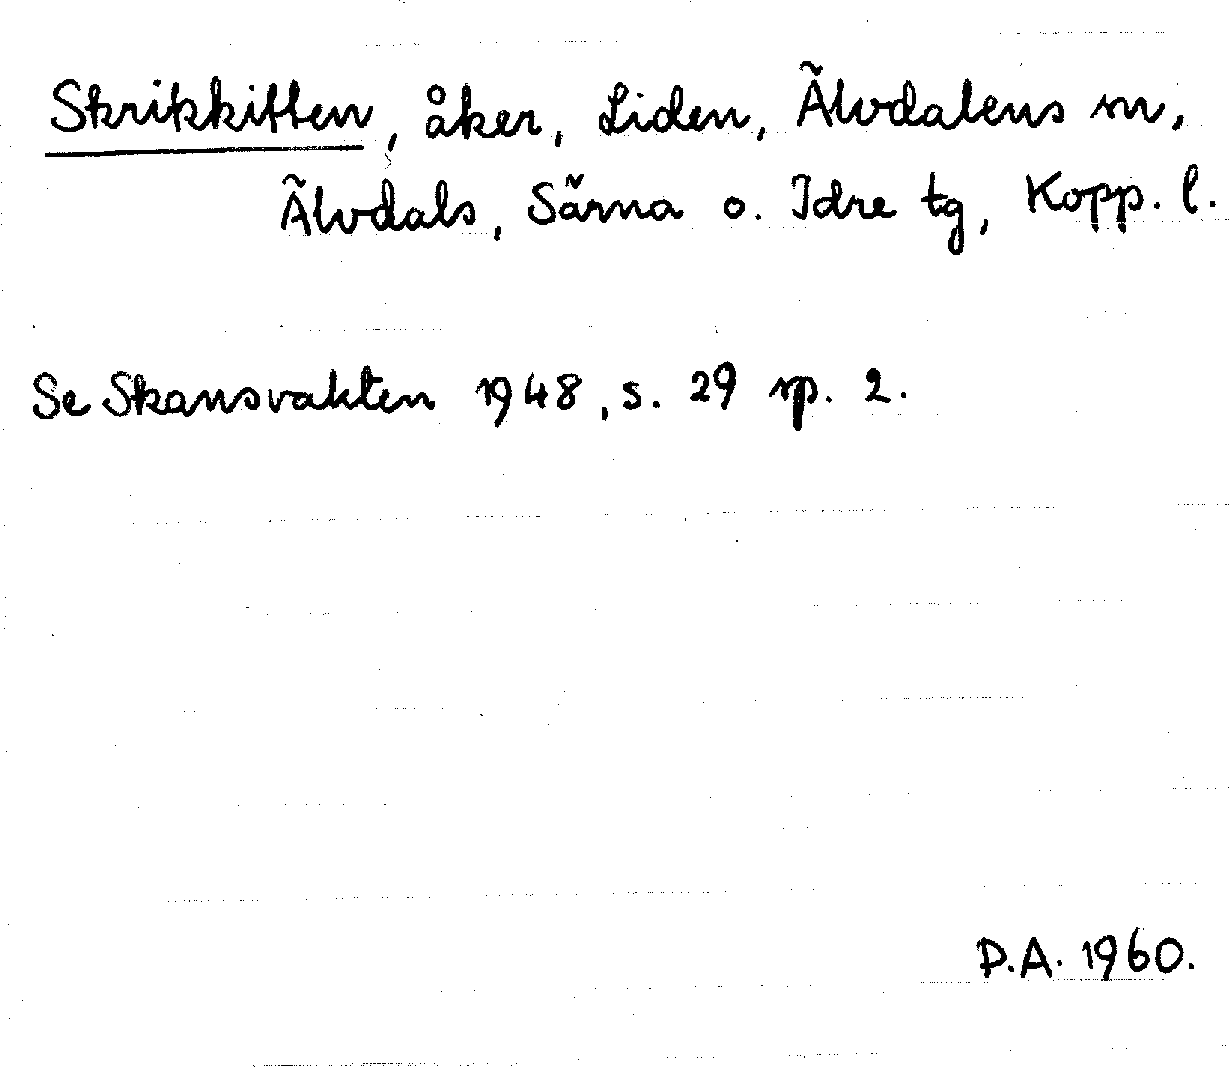 Skrikkitten, åker, Liden, Älvdalens sn,
Älvdals, Särna o. Idre tg, Kopp. l.
Se Skansvakten 1948, s. 29 sp. 2.
D.A. 1960.